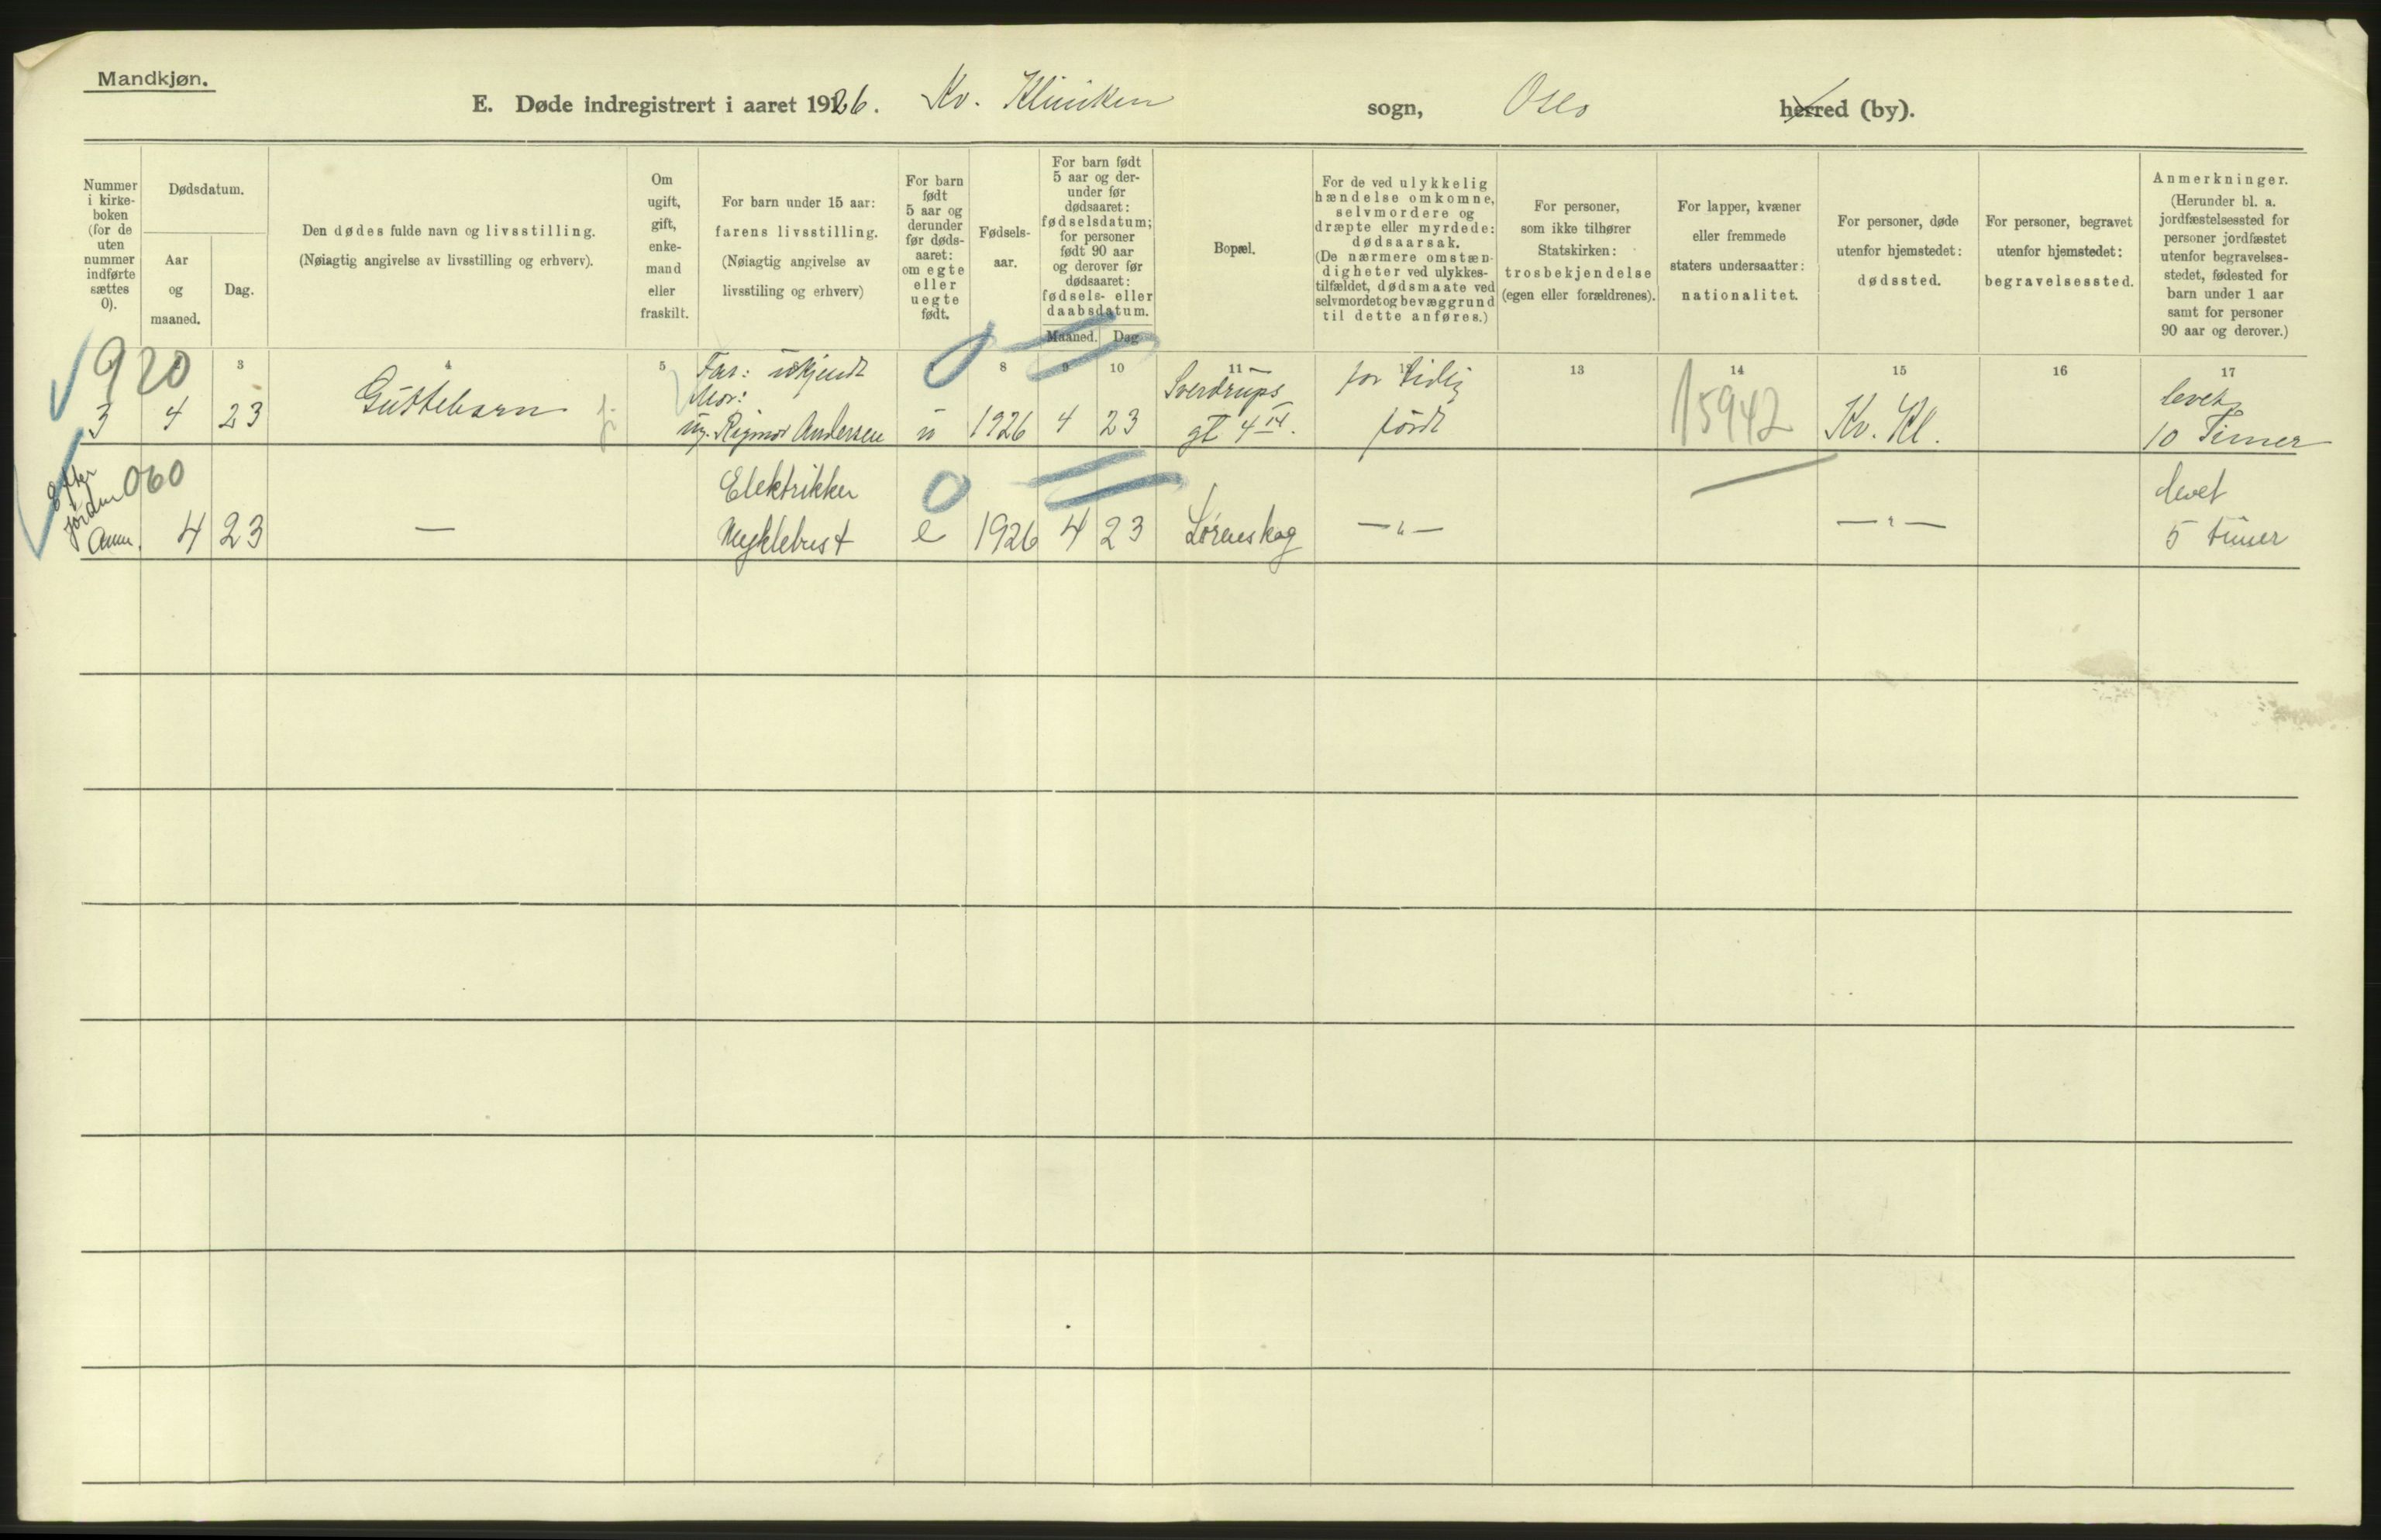 Mandkjøn.
E. Døde indregistrert i aaret 1926. Kv. Kliniken sogn, Oslo herred (by).
Nummer
i kirke-
boken
(for de
uten
nummer
indførte
sættes
0).
Dødsdatum.
Aar
og
maaned.
Dag.
Den dødes fulde navn og livsstilling.
(Nøiagtig angivelse av livsstilling og erhverv).
Om
ugift,
gift,
enke-
mand
eller
fraskilt.
For barn under 15 aar:
farens livsstilling.
(Nøiagtig angivelse av
livsstiling og erhverv)
For barn
født
5 aar og
derunder
før døds-
aaret:
om egte
eller
uegte
født.
Fødsels-
aar.
For barn født
5 aar og der-
under før
dødsaaret:
fødselsdatum;
for personer
født 90 aar
og derover før
dødsaaret:
fødsels- eller
daabsdatum.
Maaned. Dag
Bopæl.
For de ved ulykkelig
hændelse omkomne,
selvmordere og
dræpte eller myrdede:
dødsaarsak.
(De nærmere omstæn-
digheter ved ulykkes-
tilfældet, dødsmaate ved
selvmordet og bevæggrund
til dette anføres.)
For personer,
som ikke tilhører
Statskirken:
trosbekjendelse
(egen eller forældrenes).
For lapper, kvæner
eller fremmede
staters undersaatter:
nationalitet.
For personer, døde
utenfor hjemstedet:
dødssted.
For personer, begravet
utenfor hjemstedet:
begravelsessted.
Anmerkninger.
(Herunder bl. a.
jordfæstelsessted for
personer jordfæstet
utenfor begravelses-
stedet, fødested for
barn under 1 aar
samt for personer
90 aar og derover.)
3 4 5 8 9 10 11 13 14 15 16 17
920 Far: ukjendt 0 Sverdrups for tidlig 15942 levet
Mor:
3 4 23 Guttebarn ug. Rigmor Andersen u 1926 4 23 gt 4 IV. født Kv. Kl. 10 Timer
Efter
jordm
Anm.
060 Elektrikker 0 levet
4 23 — Myklebust e 1926 4 23 Lørenskog — " — — " — 5 timer